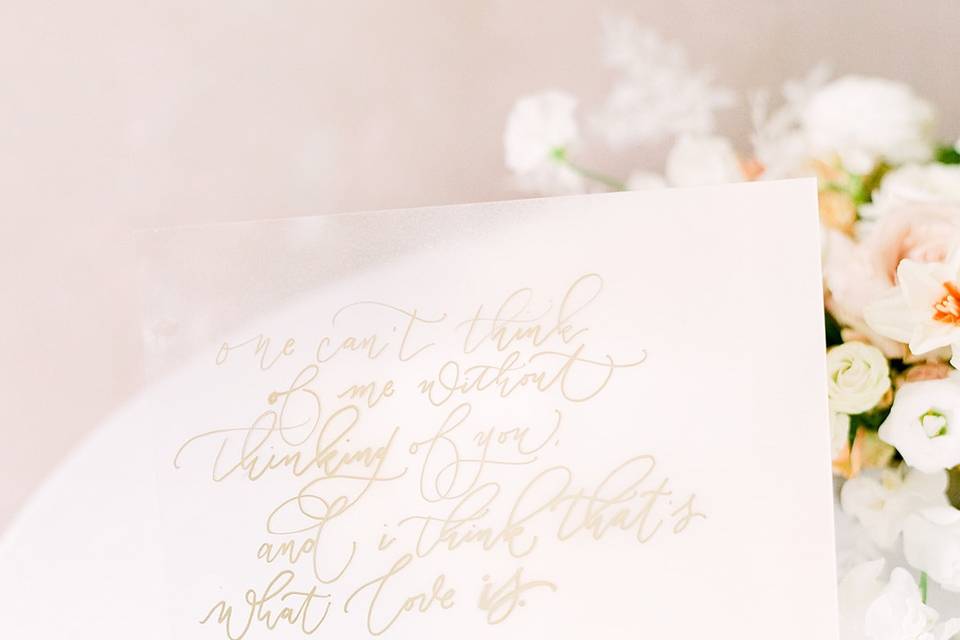 one can't think
of me without
thinking of you,
and i think that's
what love is.